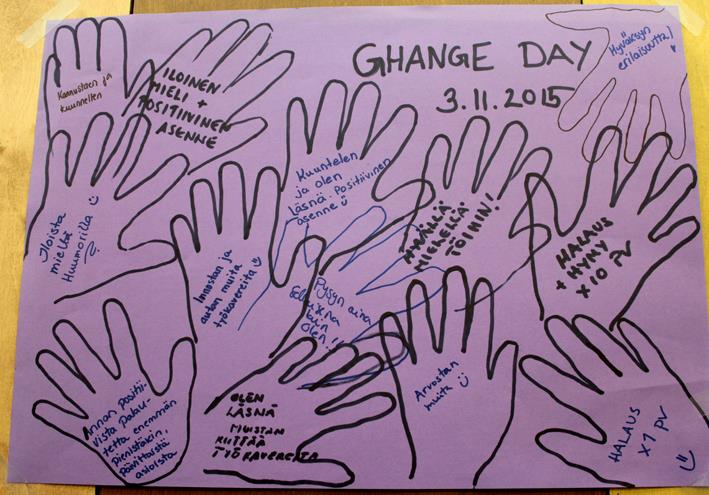 GHANGE DAY
3.11.2015
Kannustaen ja
kuunnellen
ILOINEN
MIELI +
POSITIIVINEN
ASENNE
Hyväksyn
erilaisuutta!
Iloista
mieltä
Huumorilla
Innostan ja
autan muita
työkavereita
Kuuntelen
ja olen
Läsnä. Positiivinen
asenne
MIELELLÄ
TOIMIN!
HALAUS
+ HYMY
X10 PV
Pysyn aina
olen!!
Annan positii-
vista palau-
tetta enemmän
pienistäkin,
päivittäisistä
asioista
OLEN
LÄSNÄ
MUISTAN
KIITTÄÄ
TYÖKAVEREITA
Arvostan
muita
HALAUS
X1 PV